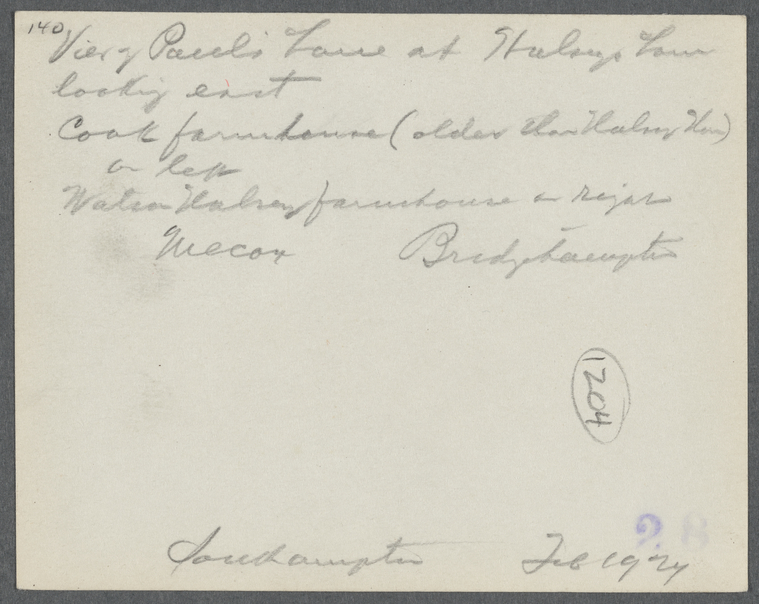 140
View of Paul's Lane at Halsey Lane
looking east
Cook farmhouse (older than Halsey House)
on left
Watson Halsey farmhouse on right
Mecox Bridgehampton
1204
28
Southampton Feb 1924